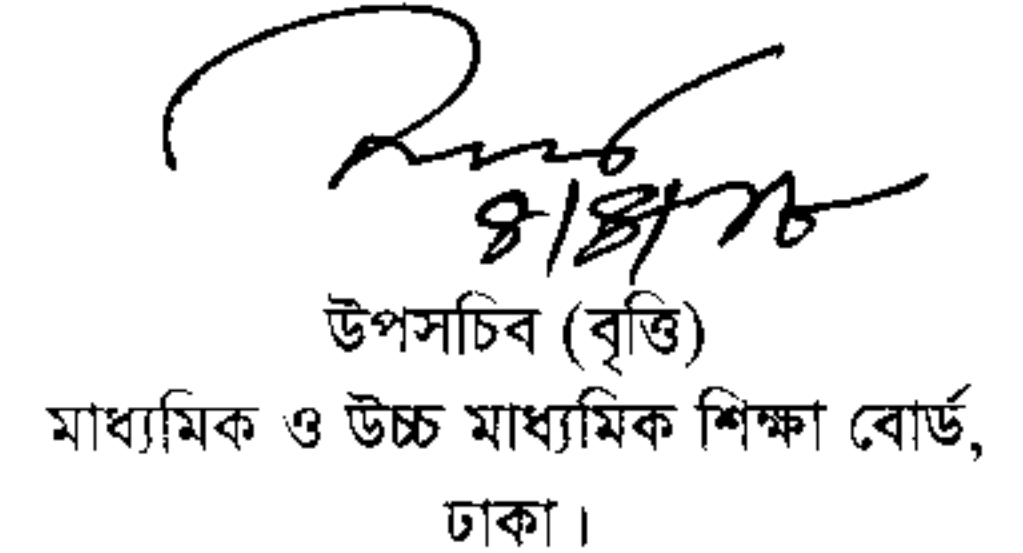 উপসচিব (বৃত্তি)
মাধ্যমিক ও উচ্চ মাধ্যমিক শিক্ষা বোর্ড,
ঢাকা।